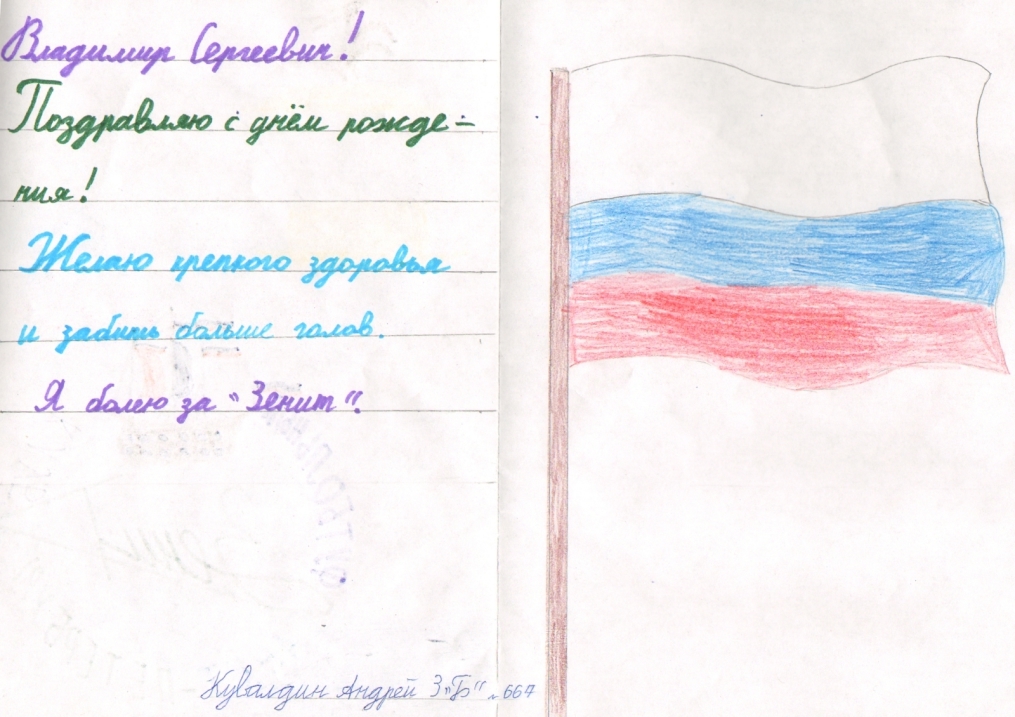 Владимир Сергеевич!
Поздравляю с днём рожде-
ния!
Желаю крепкого здоровья
и забить больше голов.
Я болею за "Зенит".
Кувалдин Андрей 3 "Б" 667